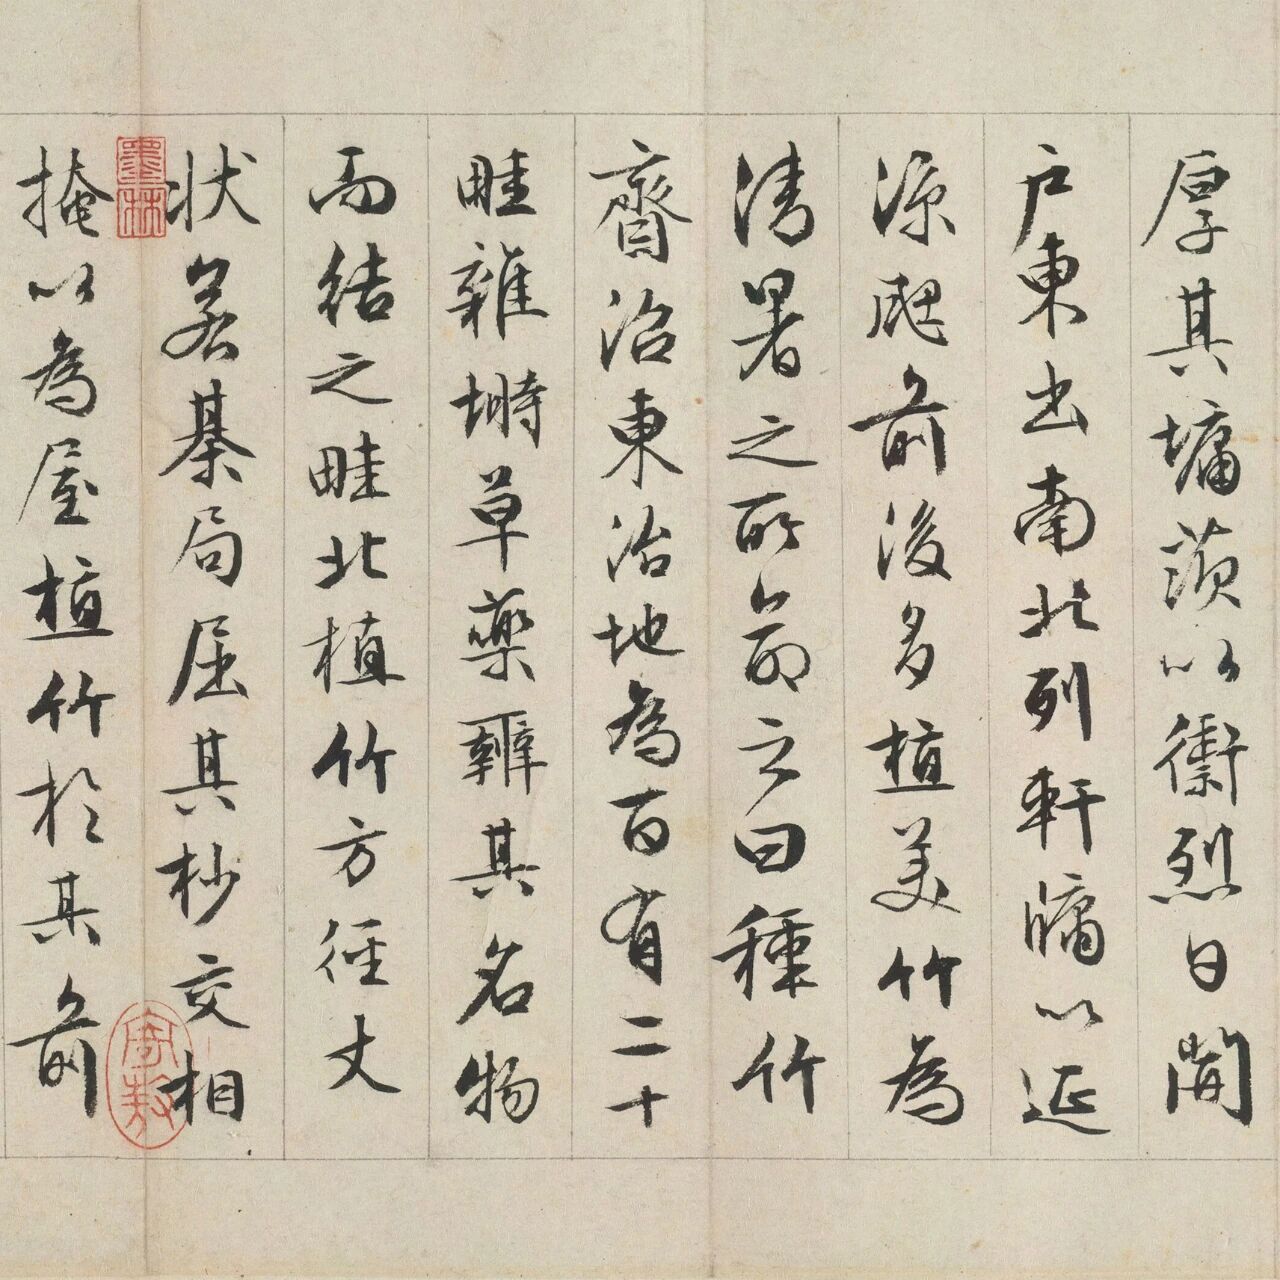 厚其墉茨以衞烈日開
戶東出南北列軒牖以延
涼颸前後多植美竹為
清暑之所命之曰種竹
齋沼東治地為百有二十
畦雜蒔草藥辨其名物
而結之畦北植竹方徑丈
状若棊局屈其杪交相
掩以為屋植竹於其前
墨林